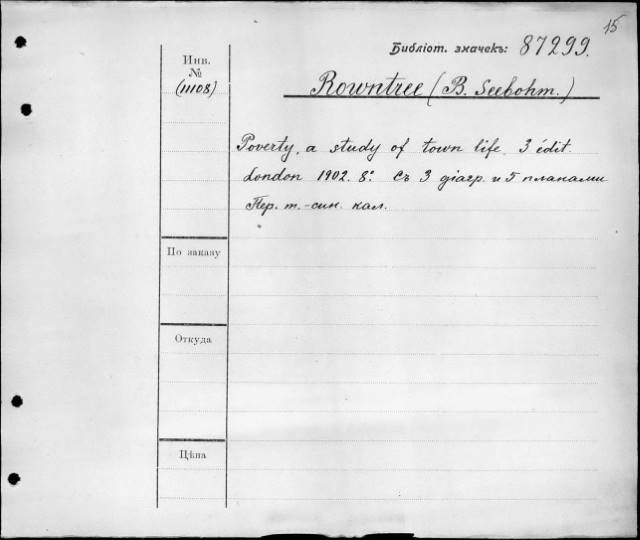 15
Библіот. значекъ: 87299.
Инв.
№
(11108)
Rowntree (B. Seebohm.)
Poverty, a study of town life. 3 édit.
London 1902. 8º. Съ 3 діагр. и 5 планами
Пер. т.-син. кал.
По заказу
Откуда
Цѣна